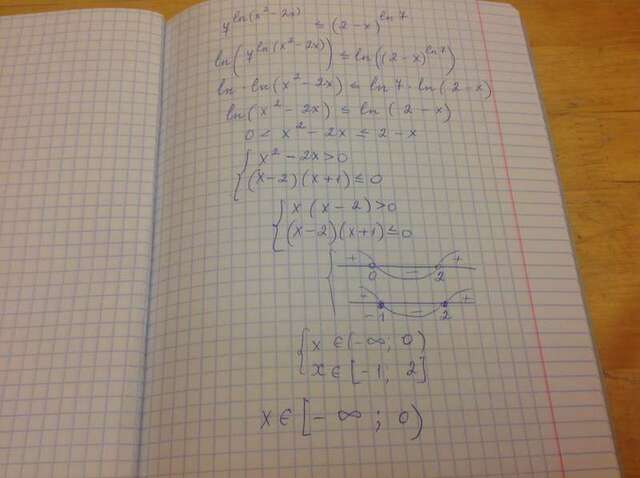 y^ln(x² - 2x) ≤ (2 - x)^ln 7
ln(y^ln(x² - 2x)) ≤ ln((2 - x)^ln 7)
ln · ln(x² - 2x) ≤ ln 7 · ln(2 - x)
ln(x² - 2x) ≤ ln(2 - x)
0 < x² - 2x ≤ 2 - x
{ x² - 2x > 0
(x - 2)(x + 1) ≤ 0
{ x(x - 2) > 0
(x - 2)(x + 1) ≤ 0
{ + 0 - 2 +
+ -1 - 2 +
{ x ∈ [-∞; 0)
x ∈ [-1, 2]
x ∈ [-∞; 0)